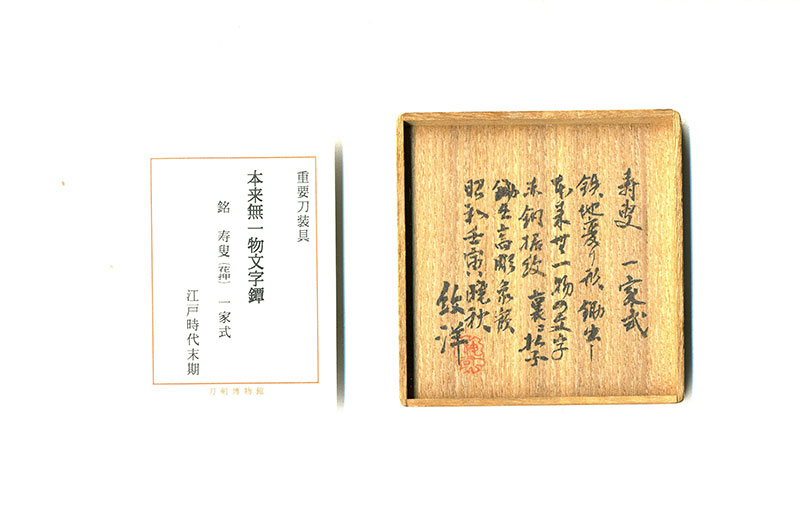 重要刀装具
本来無一物文字鐔
銘 寿叟(花押) 一家式
江戸時代末期
刀剣博物館
寿叟 一家式
鉄地変り形 鋤出し
本来無一物の文字
赤銅据紋 裏ニ払子
鋤出高彫象嵌
昭和壬寅晩秋